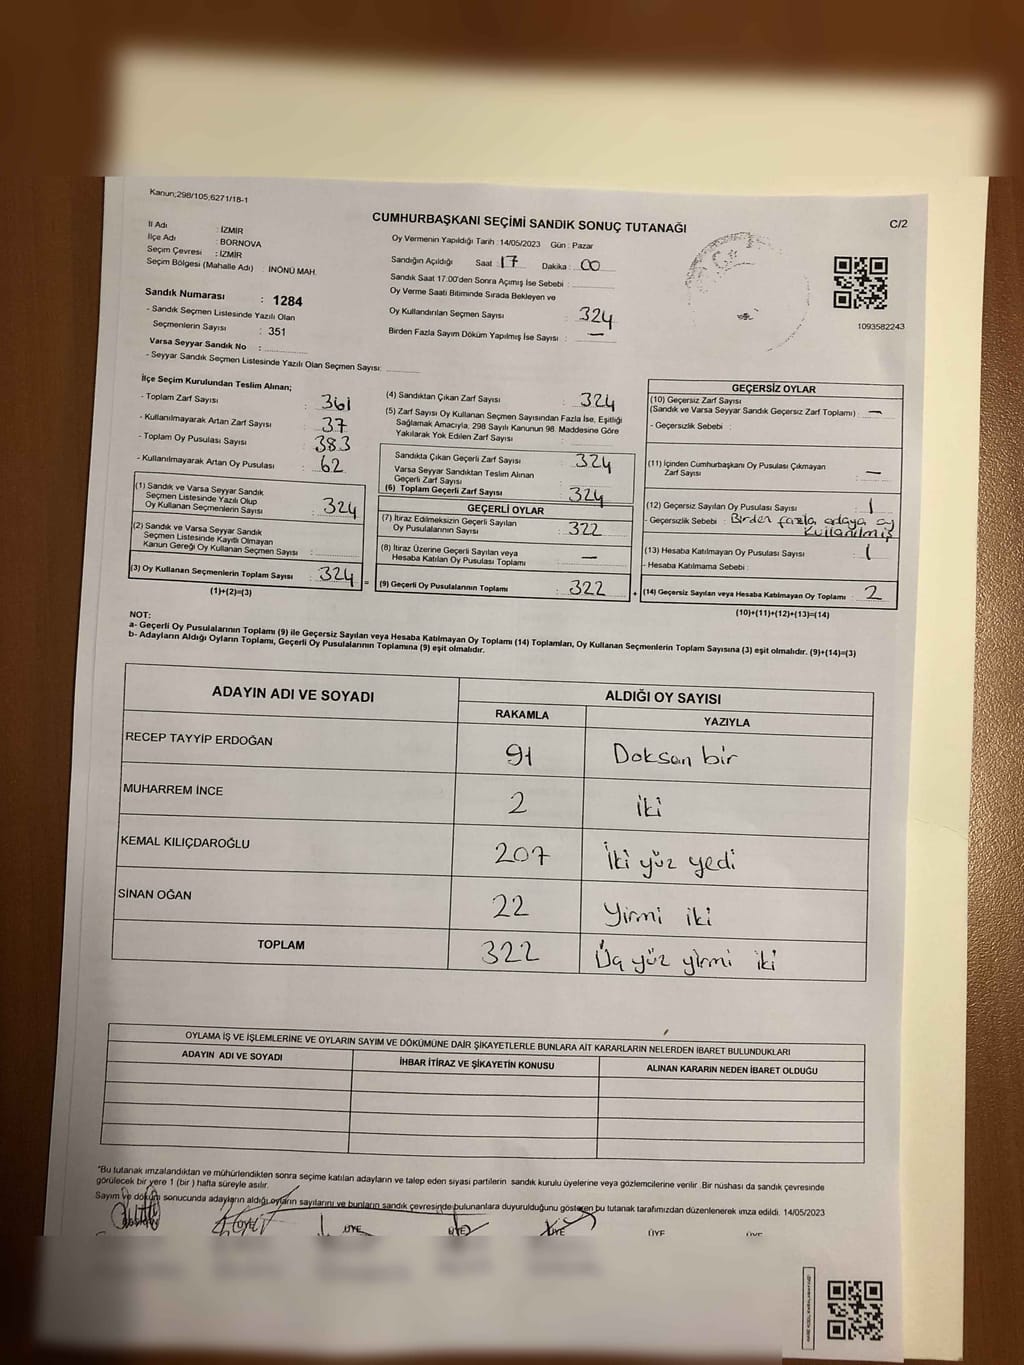 Kanun;298/105,6271/18-1
CUMHURBAŞKANI SEÇİMİ SANDIK SONUÇ TUTANAĞI
C/2
İl Adı : İZMİR
İlçe Adı : BORNOVA
Seçim Çevresi : İZMİR
Seçim Bölgesi (Mahalle Adı) : İNÖNÜ MAH.
Sandık Numarası : 1284
- Sandık Seçmen Listesinde Yazılı Olan
Seçmenlerin Sayısı : 351
Varsa Seyyar Sandık No :
- Seyyar Sandık Seçmen Listesinde Yazılı Olan Seçmen Sayısı:
Oy Vermenin Yapıldığı Tarih : 14/05/2023 Gün : Pazar
Sandığın Açıldığı Saat : 17 Dakika : 00
Sandık Saat 17:00'den Sonra Açımış İse Sebebi :
Oy Verme Saati Bitiminde Sırada Bekleyen ve
Oy Kullandırılan Seçmen Sayısı : 324
Birden Fazla Sayım Döküm Yapılmış İse Sayısı : —
1093582243
İlçe Seçim Kurulundan Teslim Alınan;
- Toplam Zarf Sayısı : 361
- Kullanılmayarak Artan Zarf Sayısı : 37
- Toplam Oy Pusulası Sayısı : 383
- Kullanılmayarak Artan Oy Pusulası : 62
(1) Sandık ve Varsa Seyyar Sandık
Seçmen Listesinde Yazılı Olup
Oy Kullanan Seçmenlerin Sayısı : 324
(2) Sandık ve Varsa Seyyar Sandık
Seçmen Listesinde Kayıtlı Olmayan
Kanun Gereği Oy Kullanan Seçmen Sayısı :
(3) Oy Kullanan Seçmenlerin Toplam Sayısı : 324 =
(1)+(2)=(3)
(4) Sandıktan Çıkan Zarf Sayısı : 324
(5) Zarf Sayısı Oy Kullanan Seçmen Sayısından Fazla İse, Eşitliği
Sağlamak Amacıyla, 298 Sayılı Kanunun 98. Maddesine Göre
Yakılarak Yok Edilen Zarf Sayısı :
Sandıkta Çıkan Geçerli Zarf Sayısı : 324
Varsa Seyyar Sandıktan Teslim Alınan
Geçerli Zarf Sayısı :
(6) Toplam Geçerli Zarf Sayısı : 324
GEÇERLİ OYLAR
(7) İtiraz Edilmeksizin Geçerli Sayılan
Oy Pusulalarının Sayısı : 322
(8) İtiraz Üzerine Geçerli Sayılan veya
Hesaba Katılan Oy Pusulası Toplamı : —
(9) Geçerli Oy Pusulalarının Toplamı : 322 +
GEÇERSİZ OYLAR
(10) Geçersiz Zarf Sayısı
(Sandık ve Varsa Seyyar Sandık Geçersiz Zarf Toplamı) : —
- Geçersizlik Sebebi :
(11) İçinden Cumhurbaşkanı Oy Pusulası Çıkmayan
Zarf Sayısı : —
(12) Geçersiz Sayılan Oy Pusulası Sayısı : 1
- Geçersizlik Sebebi : Birden fazla adaya oy
kullanılmış
(13) Hesaba Katılmayan Oy Pusulası Sayısı : 1
- Hesaba Katılmama Sebebi :
(14) Geçersiz Sayılan veya Hesaba Katılmayan Oy Toplamı : 2
(10)+(11)+(12)+(13)=(14)
NOT:
a- Geçerli Oy Pusulalarının Toplamı (9) ile Geçersiz Sayılan veya Hesaba Katılmayan Oy Toplamı (14) Toplamları, Oy Kullanan Seçmenlerin Toplam Sayısına (3) eşit olmalıdır. (9)+(14)=(3)
b- Adayların Aldığı Oyların Toplamı, Geçerli Oy Pusulalarının Toplamına (9) eşit olmalıdır.
ADAYIN ADI VE SOYADI
ALDIĞI OY SAYISI
RAKAMLA YAZIYLA
RECEP TAYYİP ERDOĞAN 91 Doksan bir
MUHARREM İNCE 2 İki
KEMAL KILIÇDAROĞLU 207 İki yüz yedi
SİNAN OĞAN 22 Yirmi iki
TOPLAM 322 Üç yüz yirmi iki
OYLAMA İŞ VE İŞLEMLERİNE VE OYLARIN SAYIM VE DÖKÜMÜNE DAİR ŞİKAYETLERLE BUNLARA AİT KARARLARIN NELERDEN İBARET BULUNDUKLARI
ADAYIN ADI VE SOYADI İHBAR İTİRAZ VE ŞİKAYETİN KONUSU ALINAN KARARIN NEDEN İBARET OLDUĞU
"Bu tutanak imzalandıktan ve mühürlendikten sonra seçime katılan adayların ve talep eden siyasi partilerin sandık kurulu üyelerine veya gözlemcilerine verilir .Bir nüshası da sandık çevresinde
görülecek bir yere 1 (bir ) hafta süreyle asılır.
Sayım ve döküm sonucunda adayların aldığı oyların sayılarını ve bunların sandık çevresinde bulunanlara duyurulduğunu gösteren bu tutanak tarafımızdan düzenlenerek imza edildi. 14/05/2023
ÜYE ÜYE ÜYE ÜYE ÜYE